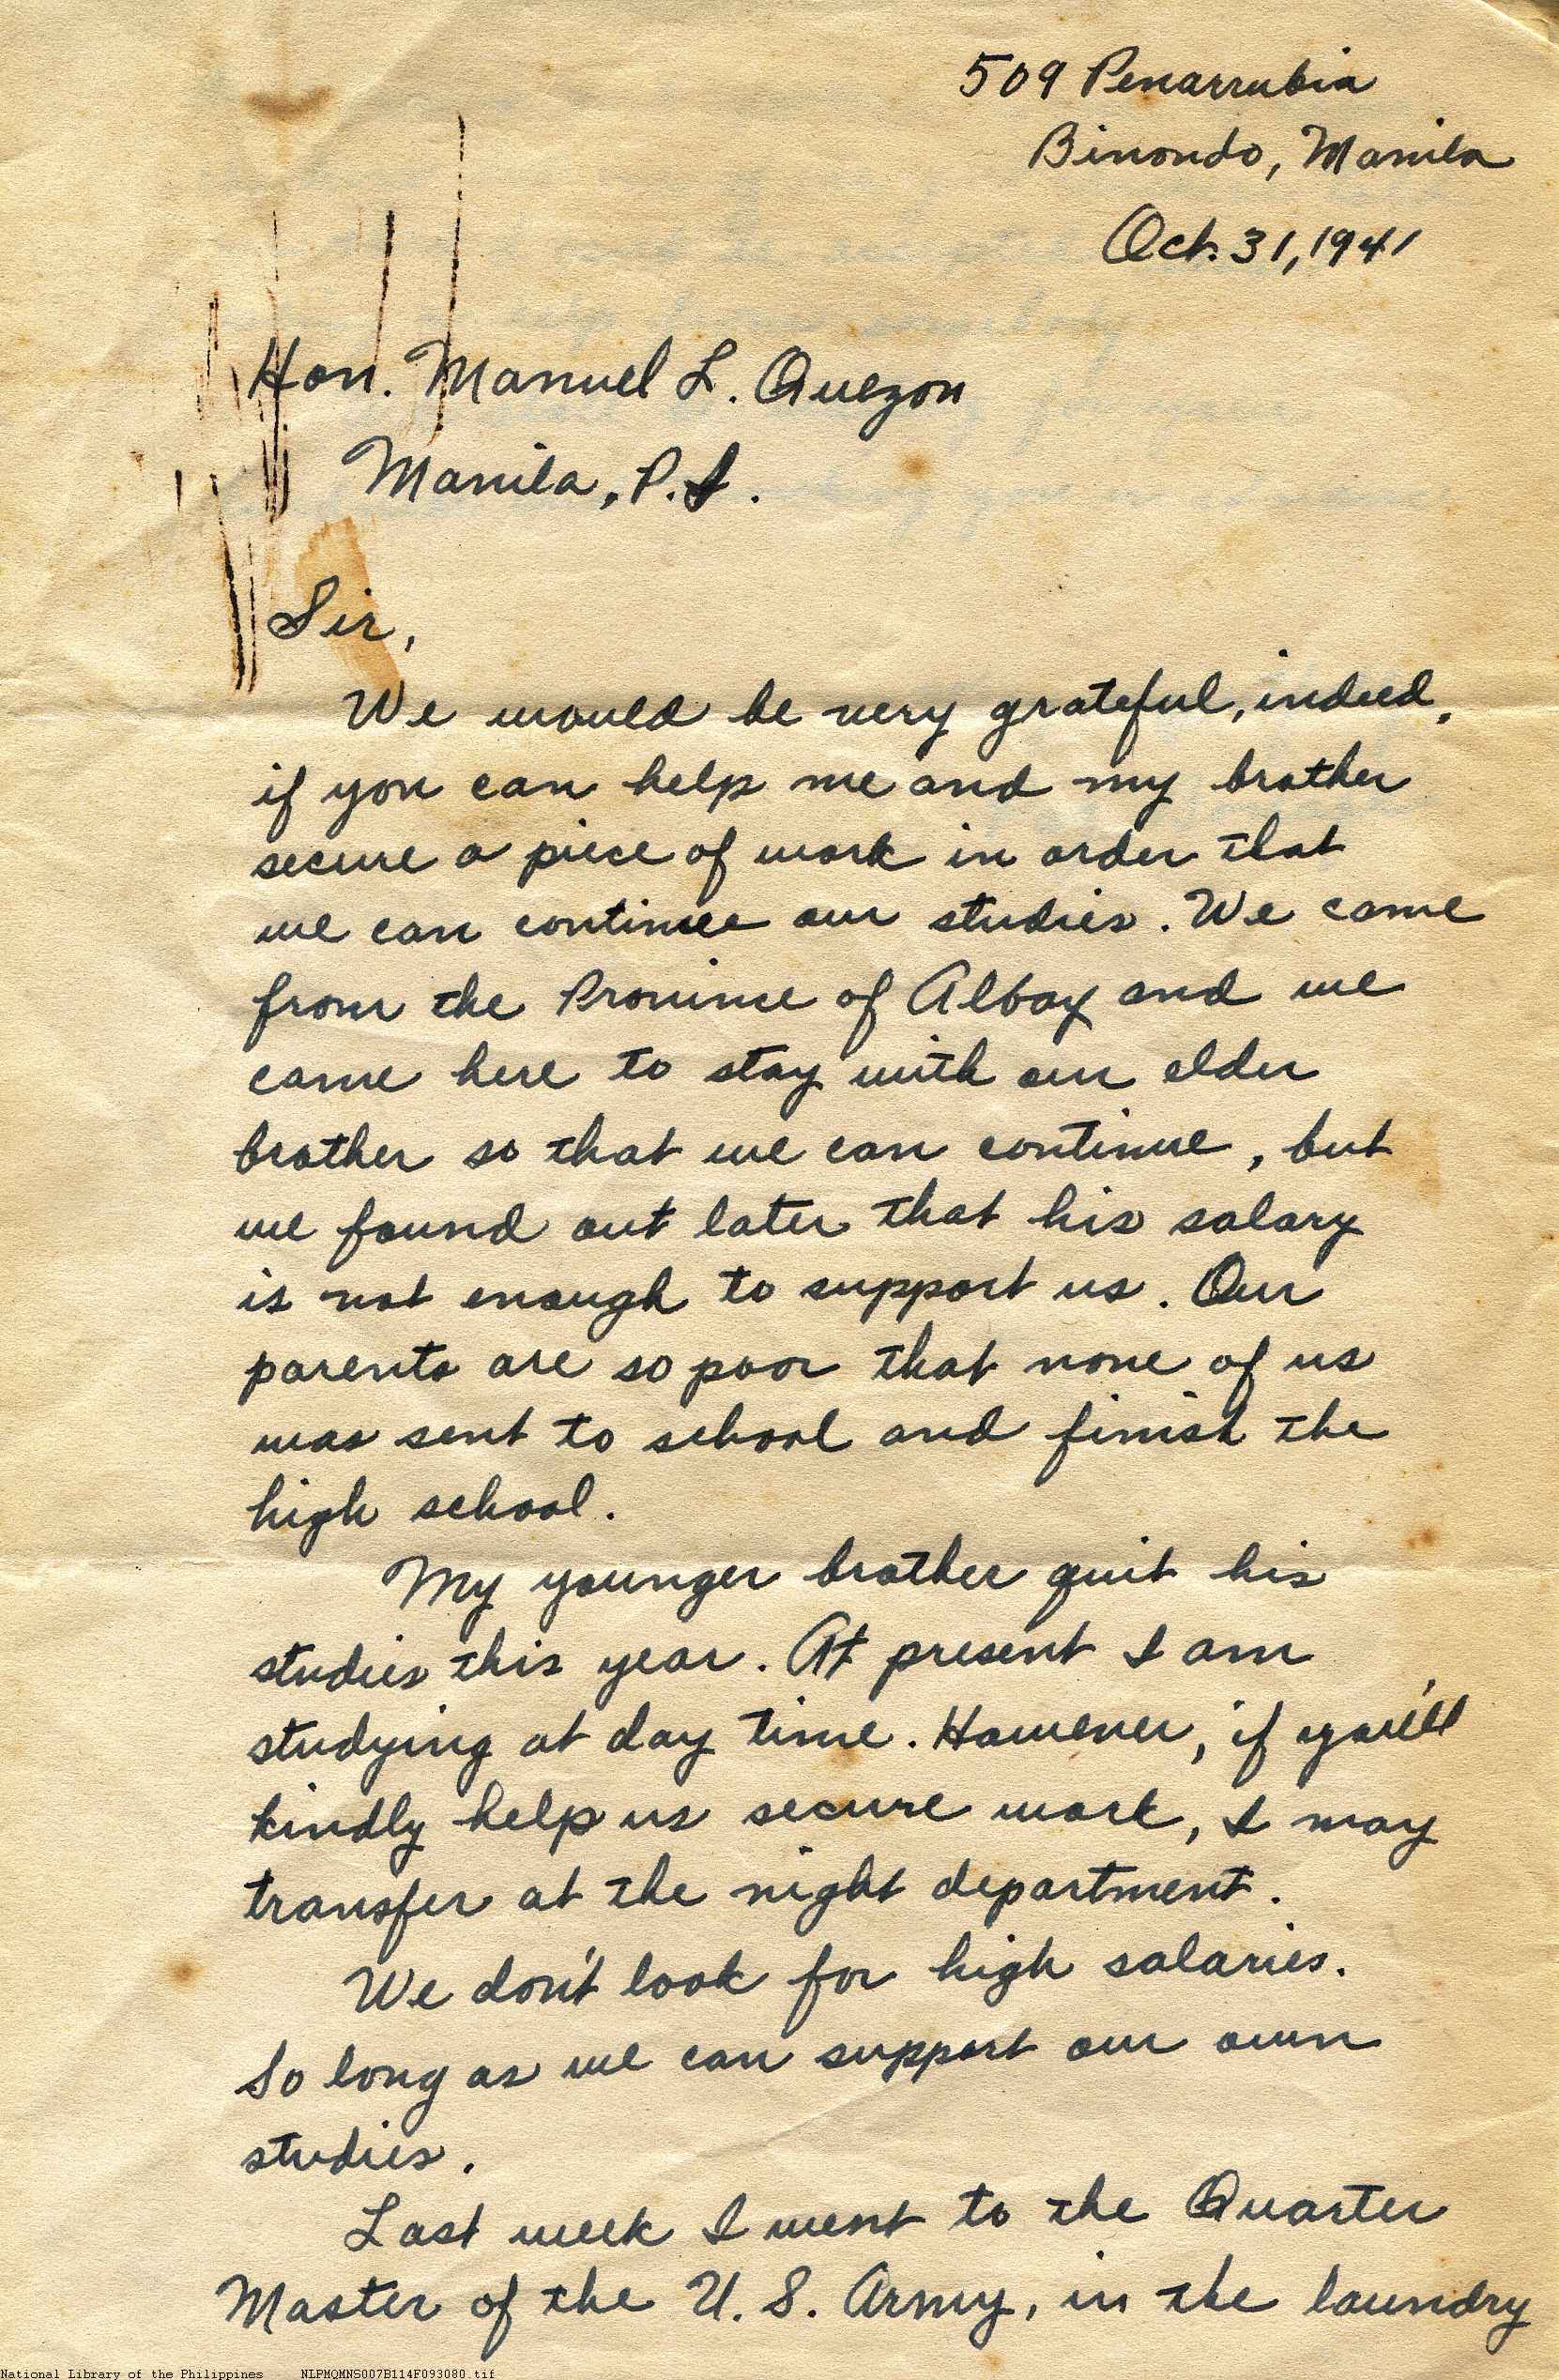 509 Penarrubia
Binondo, Manila
Oct. 31, 1941
Hon. Manuel L. Quezon
Manila, P.I.
Sir,
We would be very grateful, indeed,
if you can help me and my brother
secure a piece of work in order that
we can continue our studies. We came
from the Province of Albay and we
came here to stay with our elder
brother so that we can continue, but
we found out later that his salary
is not enough to support us. Our
parents are so poor that none of us
was sent to school and finish the
high school.
My younger brother quit his
studies this year. At present I am
studying at day time. However, if you'll
kindly help us secure work, I may
transfer at the night department.
We don't look for high salaries.
So long as we can support our own
studies.
Last week I went to the Quarter
Master of the U. S. Army, in the laundry
National Library of the Philippines NLPMQMNS007B114F093080.tif